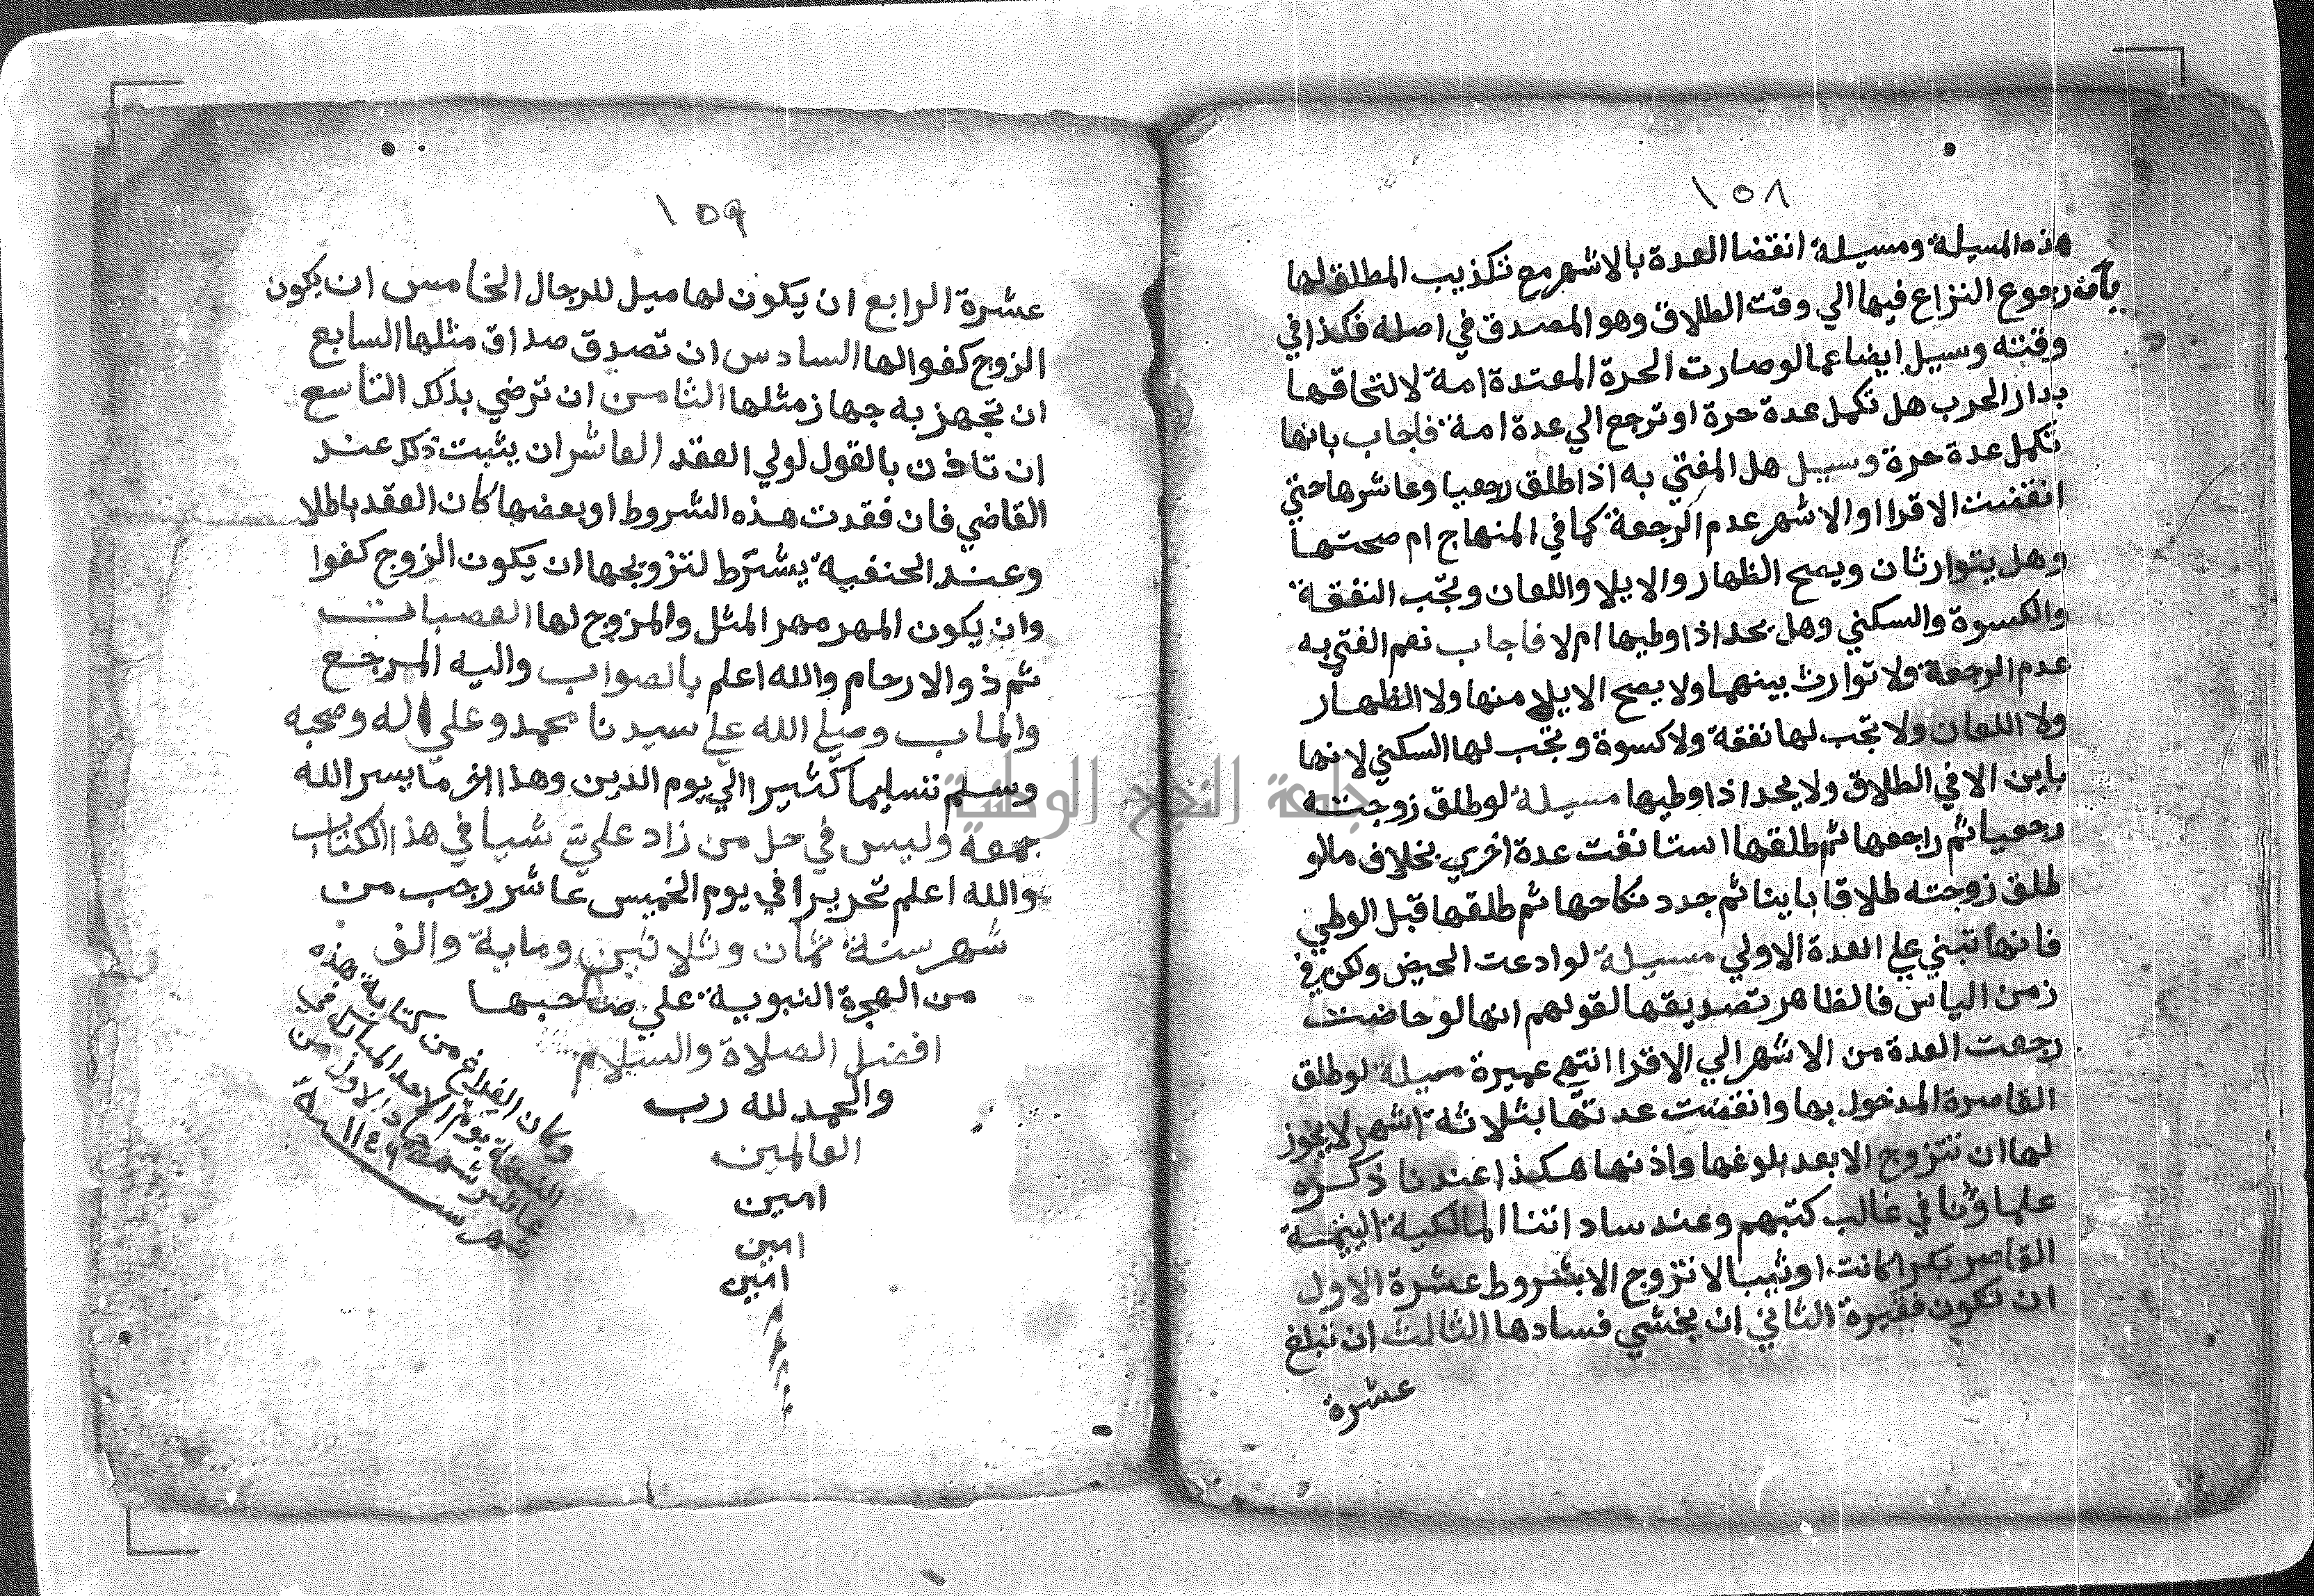 ١٥٨
هذه المسيلة ومسيلة انقضا العدة بالاشهر مع تكذيب المطلق لها
رجوع النزاع فيها الي وقت الطلاق وهو المصدق في اصله فكذا في
وقته وسيل ايضا عما لو صارت الحرة المعتدة امة لالتحاقها
بدار الحرب هل تكمل عدة حرة او ترجع الي عدة امة فاجاب بانها
تكمل عدة حرة وسييل هل المفتي به اذا طلق رجعيا وعاشرها حتي
انقضت الاقرا او الاشهر عدم الرجعة كما في المنهاج ام صحتها
وهل يتوارثان ويصح الظهار والايلا واللعان وتجب النفقة
والكسوة والسكني وهل يحد اذا وطيها ام لا فاجاب نعم المفتي به
عدم الرجعة ولا توارث بينهما ولا يصح الايلا منها ولا الظهار
ولا اللعان ولا تجب لها نفقة ولا كسوة وتجب لها السكني لانها
باين الا في الطلاق ولا يحد اذا وطيها مسيلة لو طلق زوجته
رجعيا ثم راجعها ثم طلقها استانفت عدة اخري بخلاف مالو
طلق زوجته طلاقا باينا ثم جدد نكاحها ثم طلقها قبل الوطي
فانها تبني علي العدة الاولي مسيلة لو ادعت الحيض ولكن في
زمن الياس فالظاهر تصديقها لقولهم انها لو حاضت
رجعت العدة من الاشهر الي الاقرا انتهي عميرة مسيلة لو طلق
القاصرة المدخول بها وانقضت عدتها بثلاثة اشهر لا يجوز
لها ان تتزوج الا بعد بلوغها واذنها هكذا عندنا ذكره
علماؤنا في غالب كتبهم وعند ساداتنا المالكية اليتيمة
القاصر بكرا كانت او ثيبا لا تتزوج الا بشروط عشرة الاول
ان تكون فقيرة الثاني ان يخشي فسادها الثالث ان تبلغ
عشرة
١٥٩
عشرة الرابع ان يكون لها ميل للرجال الخامس ان يكون
الزوج كفوا لها السادس ان تصدق صداق مثلها السابع
ان تجهز به جهاز مثلها الثامن ان ترضي بذلك التاسع
ان تاذن بالقول لولي العقد العاشر ان يثبت ذلك عند
القاضي فان فقدت هذه الشروط او بعضها كان العقد باطلا
وعند الحنفية يشترط لتزويجها ان يكون الزوج كفوا
وان يكون المهر مهر المثل والمزوج لها العصبات
ثم ذو الارحام والله اعلم بالصواب واليه المرجع
والماب وصلي الله علي سيدنا محمد وعلي اله وصحبه
وسلم تسليما كثيرا الي يوم الدين وهذا اخر ما يسر الله
جمعة وليس في حل من زاد علي شيا في هذا الكتاب
والله اعلم تحريرا في يوم الخميس عاشر رجب من
شهر سنة ثمان وثلاثين وماية والف
من الهجرة النبوية علي صاحبها
افضل الصلاة والسلام
والحمد لله رب
العالمين
امين
امين
امين
وكان الفراغ من كتابة هذه
النسخة يوم الاحد المبارك
عاشر شهر جماد الاول من
شهر سنة ١١٤٦
جامعة النجاح الوطنية